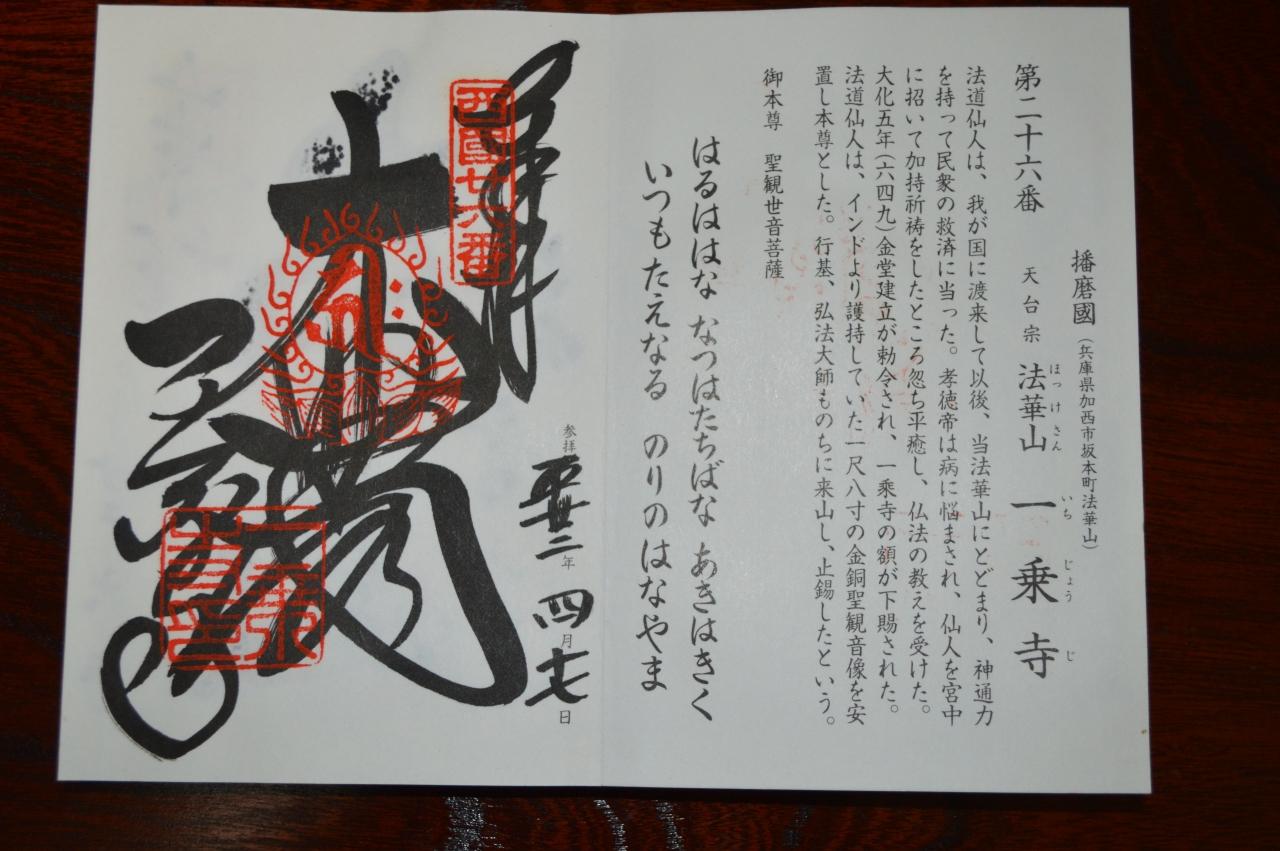 播磨國(兵庫県加西市坂本町法華山)
第二十六番 天台宗 法華山 一乗寺
ほっけさん いちじょうじ
法道仙人は、我が国に渡来して以後、当法華山にとどまり、神通力
を持って民衆の救済に当った。孝徳帝は病に悩まされ、仙人を宮中
に招いて加持祈祷をしたところ忽ち平癒し、仏法の教えを受けた。
大化五年(六四九)金堂建立が勅令され、一乗寺の額が下賜された。
法道仙人は、インドより護持していた一尺八寸の金銅聖観音像を安
置し本尊とした。行基、弘法大師ものちに来山し、止錫したという。
御本尊 聖観世音菩薩
はるははな なつはたちばな あきはきく
いつもたえなる のりのはなやま
参拝 平廿二年 四月十七日
西國廿六番
一乗